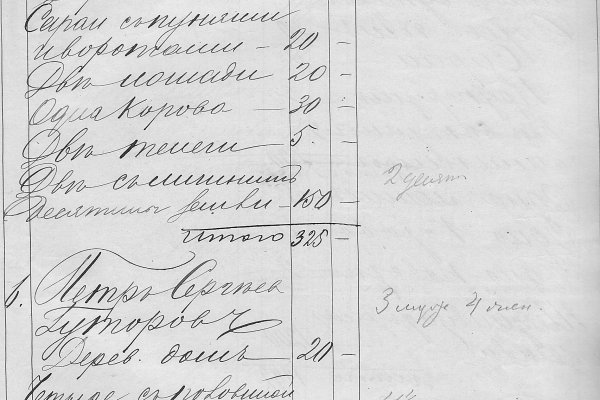 Сараи съ пуняши
и воротами — 20 —
Двѣ лошади 20 —
Одна Корова — 30 —
Двѣ телеги 5. —
Двѣ съ
десятины земли — 150 — 2 десят
Итого 325 —
6. Петръ Сергѣев
Гуторовъ 3 муж 4 жен.
Дерев. домъ — 20 —